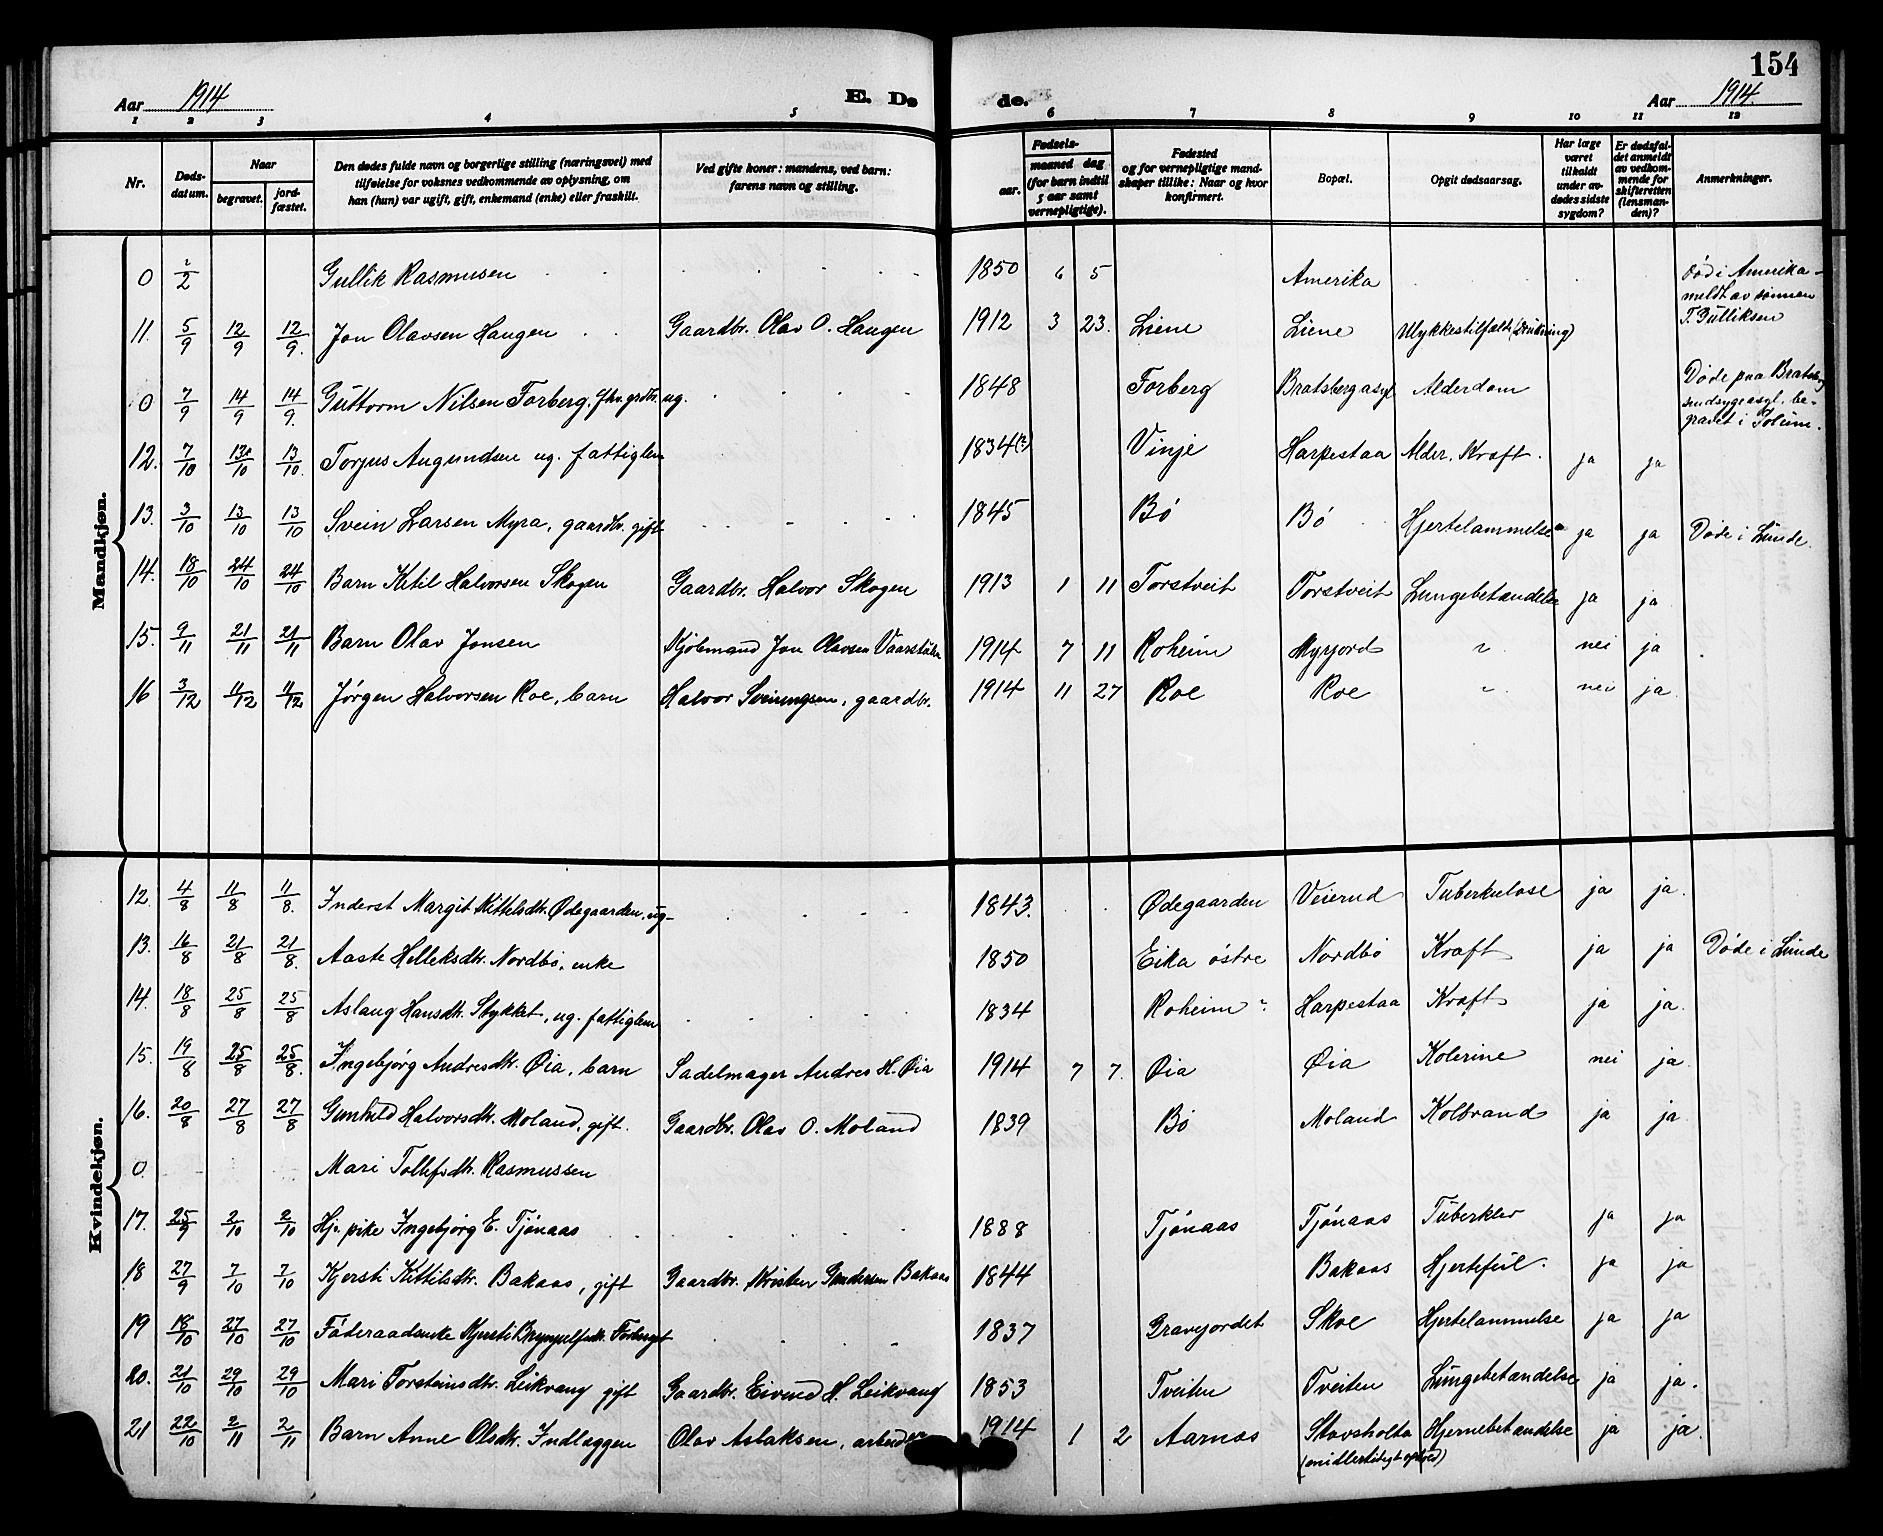 154
Aar 1914 E. Dø de. Aar 1914.
1 2 3 4 5 6 7 8 9 10 11 12
Nr. Dødsdatum. Naar begravet. jordfæstet. Den dødes fulde navn og borgerlige stilling (næringsvei) med tilføielse for voksnes vedkommende av oplysning, om han (hun) var ugift, gift, enkemand (enke) eller fraskilt. Ved gifte koner: mandens, ved barn: farens navn og stilling. Fødsels- aar. maaned dag (for barn indtil 5 aar samt vernepligtige). Fødested og for vernepligtige mandskaper tillike: Naar og hvor konfirmert. Bopæl. Opgit dødsaarsag. Har læge været tilkaldt under avdødes sidste sygdom? Er dødsfaldet anmeldt av vedkommende for skifteretten (lensmanden)? Anmerkninger.
Mandkjøn.
0 2/2 Gullik Rasmusen 1850 6 5 Amerika Død i Amerika - meldt av sønnen T. Gulliksen
11. 5/9 12/9 12/9. Jon Olavsen Haugen Gaardbr. Olav O. Haugen 1912 3 23. Liene Liene Ulykkestilfælde (Drukning)
0 7/9 14/9 14/9. Guttorm Nilsen Forberg, fhv. grdbr. ug. 1848 Forberg Bratsbergasyl Alderdom Døde paa Bratsberg sindsygeasyl, begravet i Solum.
12. 7/10 13/10 13/10. Torjus Aagundsen ug. fattiglem 1834(?) Vinje Harpestaa Alder. Kræft. ja ja
13. 3/10 13/10 13/10 Svein Larsen Myra, gaardbr. gift 1845 Bø Bø Hjertelammelse ja ja Døde i Lunde.
14. 18/10 24/10 24/10 Barn Ketil Halvorsen Skogen Gaardbr. Halvor Skogen 1913 1 11 Torstveit Torstveit Lungebetændelse ja ja
15. 9/11 21/11 21/11 Barn Olav Jonsen Kjøbmand Jon Olavsen 1914 7 11 Roheim Myrjord " nei ja
16 3/12 11/12 11/12 Jørgen Halvorsen Roe, barn Halvor Sveinungsen, gaardbr. 1914 11 27 Roe Roe " nei ja
Kvindekjøn.
12. 4/8 11/8 11/8. Inderst Margit Kittelsdtr. Ødegaarden, ug- 1843. Ødegaarden Veierud Tuberkulose ja ja.
13. 16/8 21/8 21/8. Aaste Helleksdtr. Nordbø, enke 1850 Eika østre Nordbø Kræft ja ja Døde i Lunde
14. 18/8 25/8 25/8 Aslaug Hansdtr. Stykket, ug. fattiglem 1834 Roheim? Harpestaa Kræft ja ja.
15. 19/8 25/8 25/8. Ingebjørg Andresdtr. Øia, barn Sadelmager Andres H. Øia 1914 7 7. Øia Øia Kolerine nei ja
16. 20/8 27/8 27/8 Gunhild Halvorsdtr. Moland, gift. Gaardbr. Olav O. Moland 1839 Bø Moland Kolbrand ja ja.
0. Mari Tollefsdtr. Rasmussen
17. 25/9 2/10 2/10 Hj. pike Ingebjørg E. Tjønaas 1888 Tjønaas Tjønaas Tuberklr ja ja
18 27/9 7/10 7/10 Kjersti Kittilsdtr. Bakaas, gift Gaardbr. Kristen Gundersen Bakaas 1844 Bakaas Hjertefeil. ja ja
19 18/10 27/10 27/10 Føderaadsenke Kjersti Brynjulfsdtr. Forberget 1837 Gravjordet Skoe Hjertelammelse ja ja
20. 21/10 29/10 29/10 Mari Torsteinsdtr. Leikvang gift Gaardbr. Eivind H. Leikvang 1853 Tveiten Tveiten Lungebetændelse ja ja.
21 22/10 2/11 2/11 Barn Anne Olsdtr. Indlæggen Olav Aslaksen, arbeider 1914 1 2 Aarnes Stavsholta (midlertidigt ophold) Hjernebetændelse ja ja.